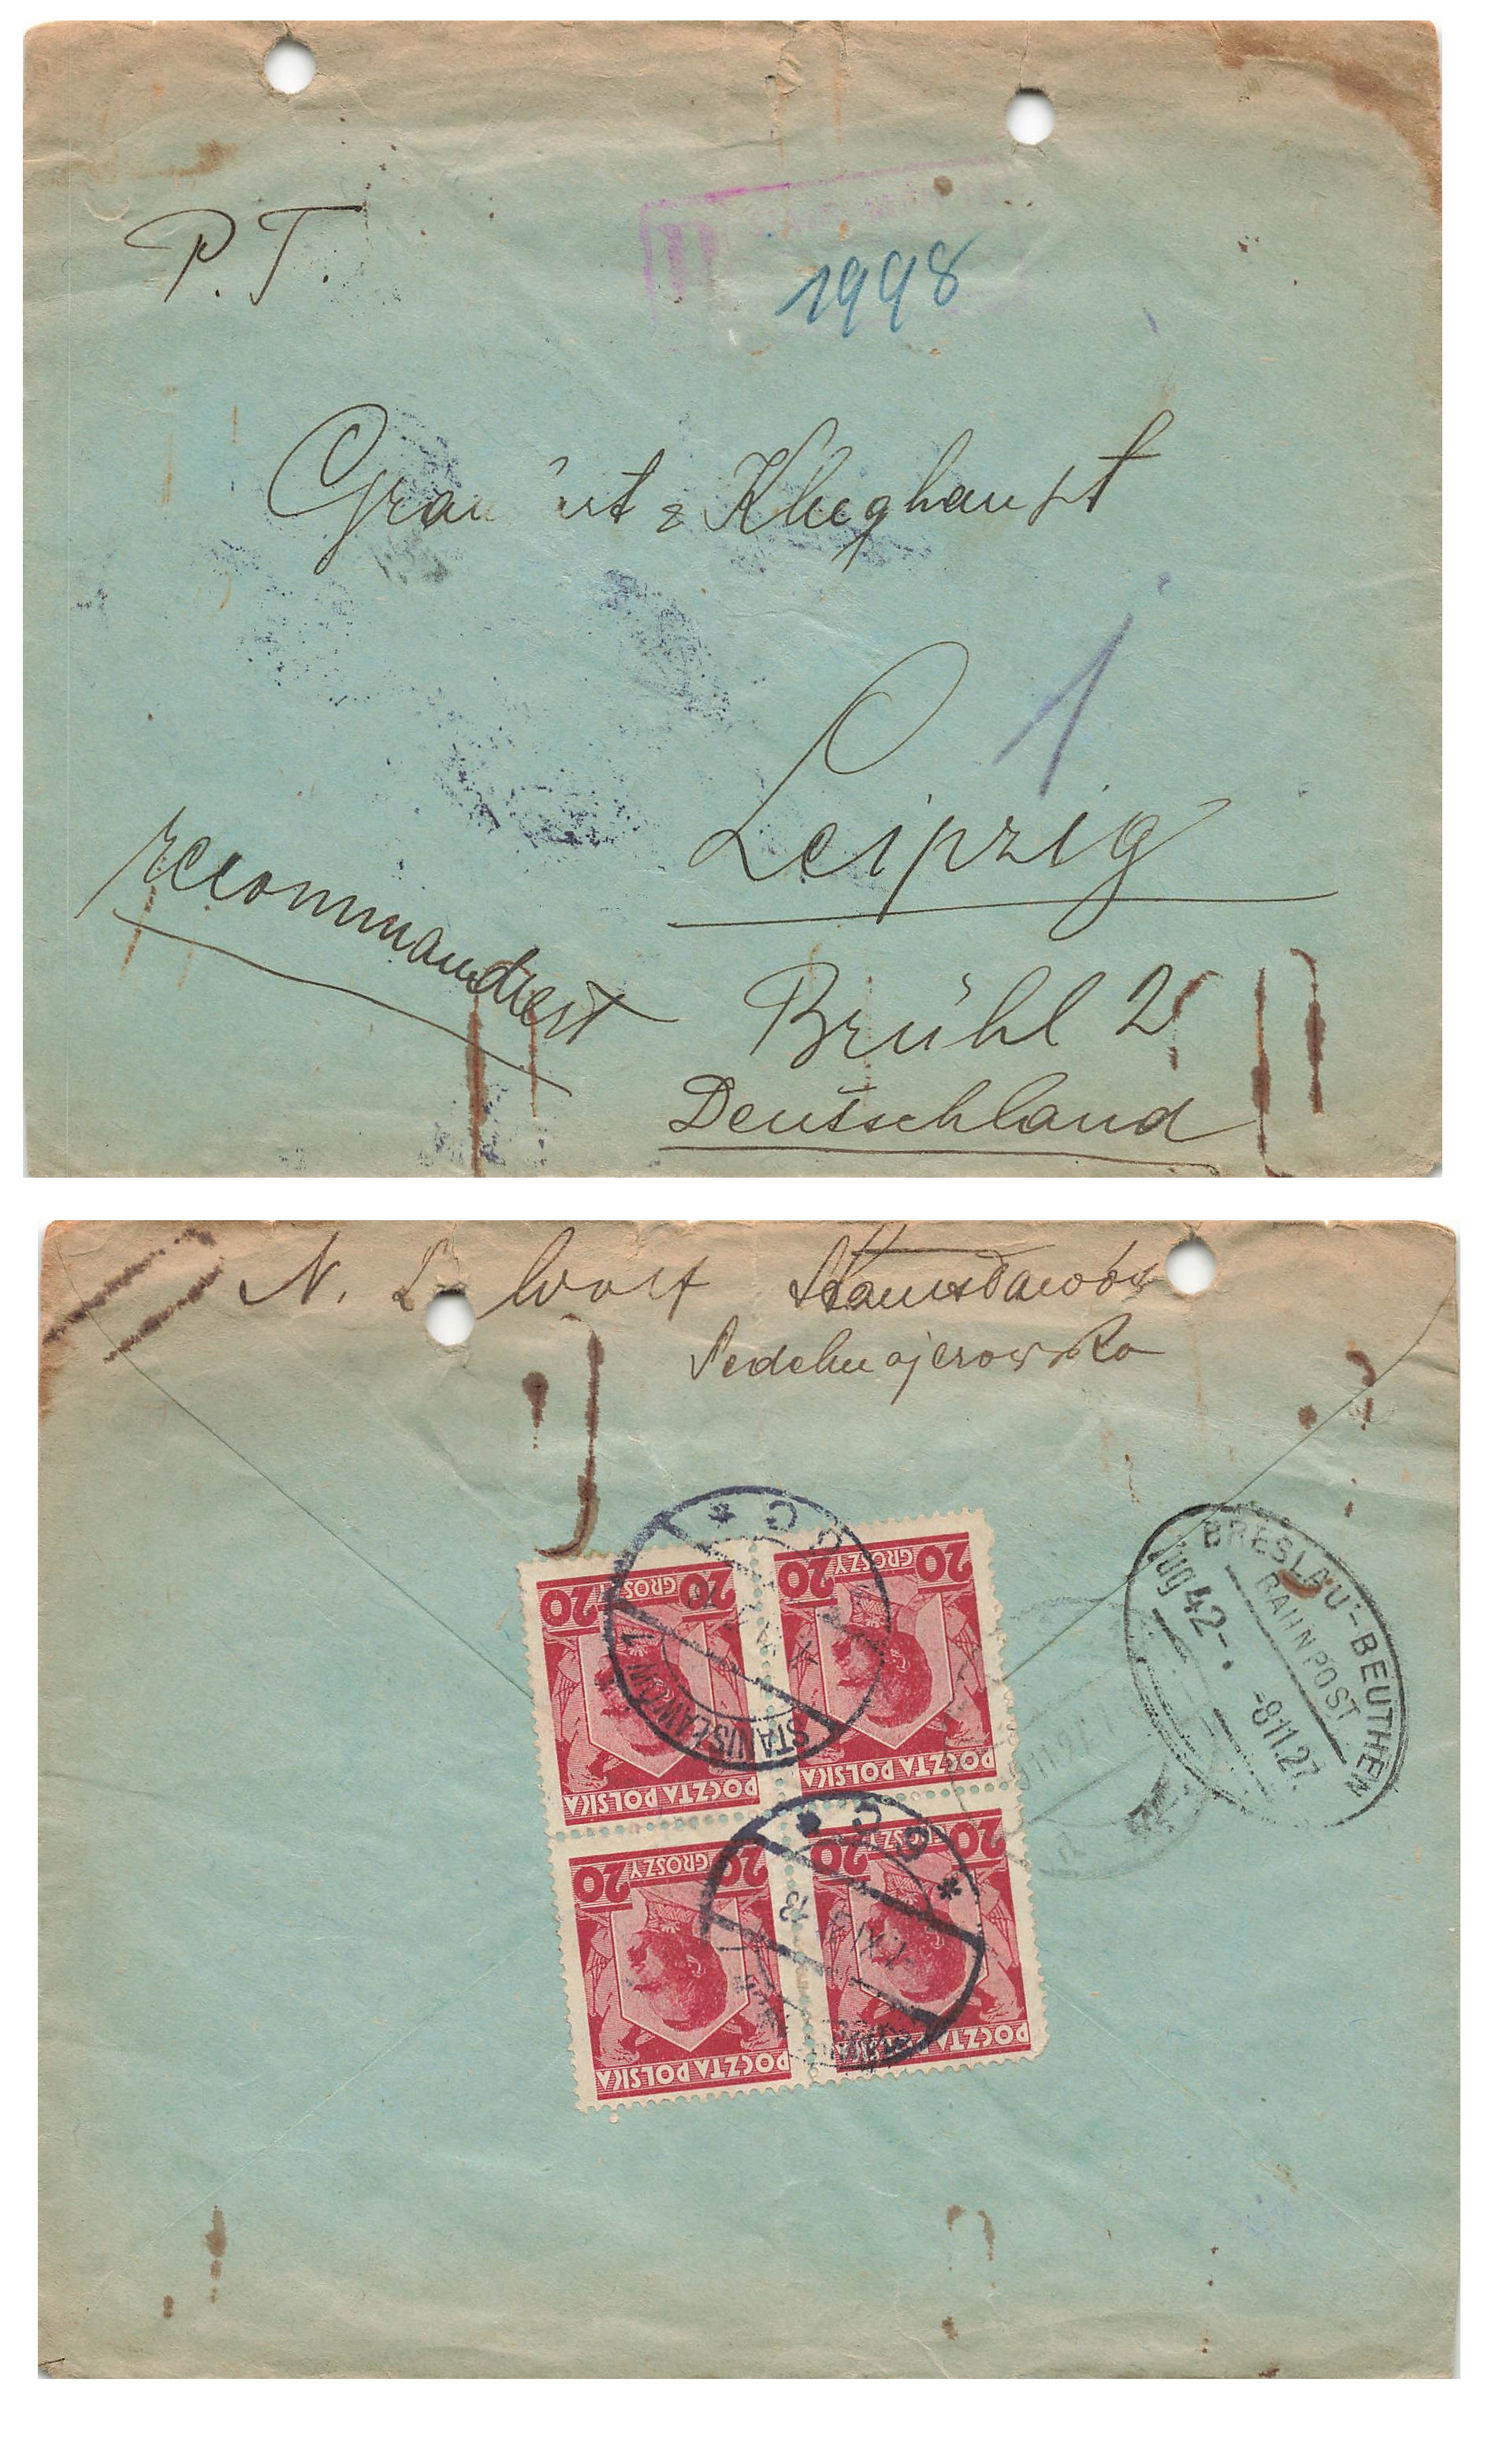 P. T.
1998
& Klughaupt
1
Leipzig
recommandiert
Brühl 2
Deutschland
N. Wolf Stanisławów
20 GROSZY 20
20 GROSZY 20
POCZTA POLSKA
POCZTA POLSKA
20 GROSZY 20
20 GROSZY 20
POCZTA POLSKA
POCZTA POLSKA
STANISŁAWÓW 1
BRESLAU-BEUTHEN
BAHNPOST
Zug 42
-8.11.27.